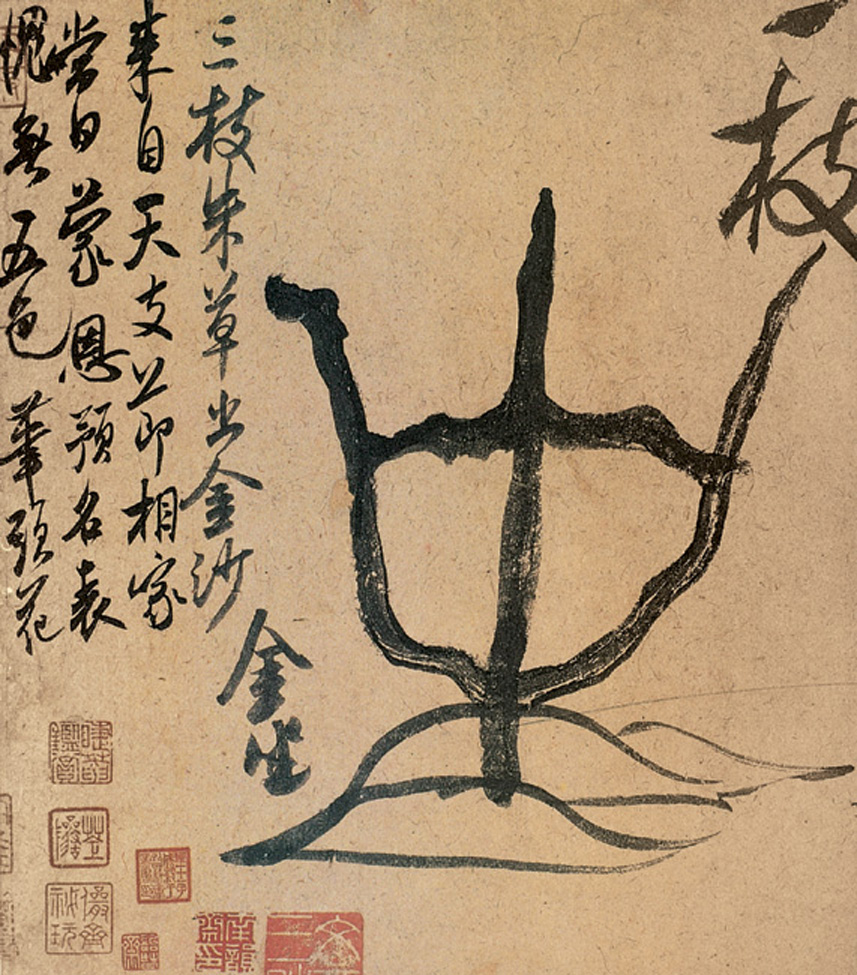 一枝
三枝朱草出金沙
来自天支節相家
當日蒙恩預名表
愧無五色筆頭花
金坐
儼齋秘玩